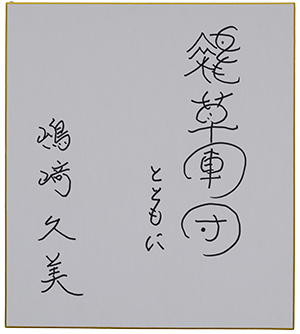 雑草軍団
とともに
嶋﨑久美